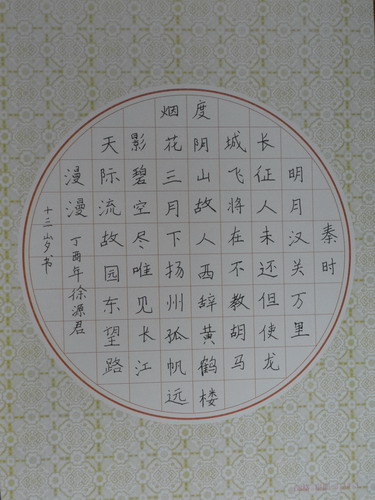 秦时
明月汉关万里
长征人未还但使龙
城飞将在不教胡马
度阴山故人西辞黄鹤楼
烟花三月下扬州孤帆远
影碧空尽唯见长江
天际流故园东望路
漫漫
丁酉年徐源君
十三岁书